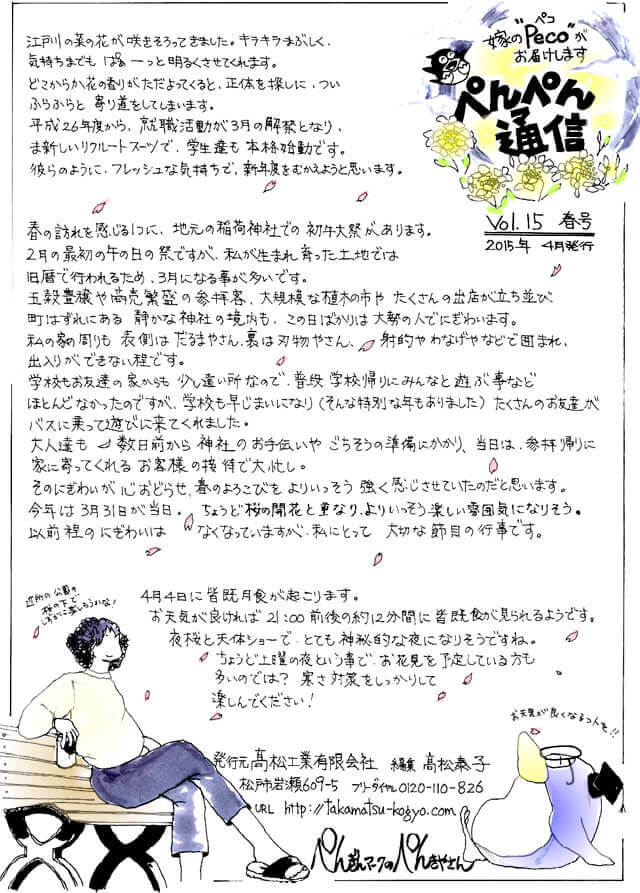 嫁の"Peco"が
ペコ
お届けします
ぺんぺん
通信
Vol.15 春号
2015年 4月発行
江戸川の菜の花が咲きそろってきました。キラキラまぶしく、
気持ちまでも ぱぁーっと明るくさせてくれます。
どこからか花の香りがただよってくると、正体を探しに、つい
ふらふらと 寄り道をしてしまいます。
平成26年度から、就職活動が3月の解禁となり、
ま新しいリクルートスーツで、学生達も本格始動です。
彼らのように、フレッシュな気持ちで、新年度をむかえようと思います。
春の訪れを感じる1つに、地元の稲荷神社での 初午大祭があります。
2月の最初の午の日の祭ですが、私が生まれ育った土地では
旧暦で行われるため、3月になる事が多いです。
五穀豊穣や商売繁盛の参拝客、大規模な植木の市や たくさんの出店が立ち並び、
町はずれにある 静かな神社の境内も、この日ばかりは大勢の人でにぎわいます。
私の家の周りも 表側はだるまやさん、裏は刃物やさん、射的やわなげやなどで囲まれ、
出入りができない程です。
学校もお友達の家からも 少し遠い所なので、普段 学校帰りにみんなと遊ぶ事など
ほとんどなかったのですが、学校も早じまいになり(そんな特別な年もありました)たくさんのお友達が
バスに乗って遊びに来てくれました。
大人達も 数日前から神社のお手伝いや ごちそうの準備にかかり、当日は、参拝帰りに
家に寄ってくれる お客様の接待で大忙し。
そのにぎわいが 心おどらせ、春のよろこびを よりいっそう 強く感じさせていたのだと思います。
今年は3月31日が当日。 ちょうど桜の開花と重なり、よりいっそう楽しい雰囲気になりそう。
以前程のにぎわいは なくなっていますが、私にとって 大切な節目の行事です。
近所の公園の
桜の下で
しずかに楽しもうかな!
4月4日に皆既月食が起こります。
お天気が良ければ 21:00前後の約12分間に皆既食が見られるようです。
夜桜と天体ショーで、とても神秘的な夜になりそうですね。
ちょうど土曜の夜という事で、お花見を予定している方も
多いのでは? 寒さ対策をしっかりして
楽しんでください!
お天気が良くなるコトを!!
発行元 高松工業有限会社 編集 高松泰子
松戸市岩瀬609-5 フリーダイヤル0120-110-826
URL http://takamatsu-kogyo.com
ぺんぎんマークのぺんきやさん